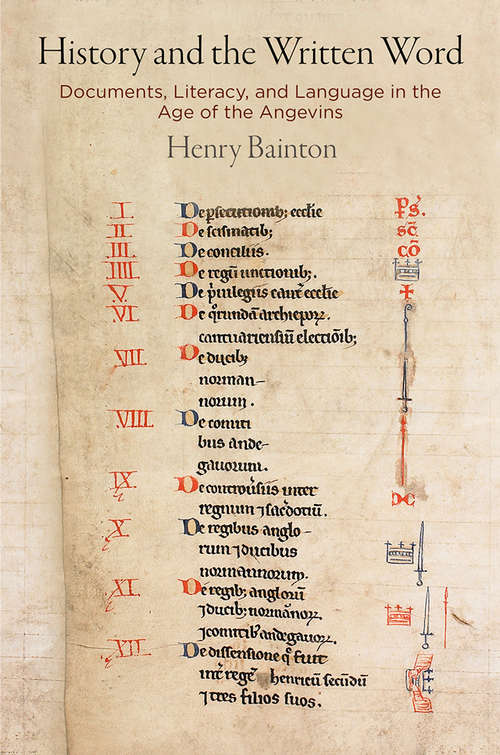 History and the Written Word
Documents, Literacy, and Language in the
Age of the Angevins
Henry Bainton
I. De ꝑsecutionib; eccƚie ps̄.
II De scismatib; sc̄
III. De conciliis. cō
IIII. De regū unctionib;.
V. De p̉uilegiis cant᷑ eccƚie
VI De qͦrundā archiep̄oꝝ.
cantuariensiū electiōib;
VII. De ducib;
norman–
norum.
VIII. De comiti
bus ande–
gauorum.
IX De controu̓siis inter
regnum ⁊ sac̓dotiū.
X De regibus anglo–
rum ⁊ ducibus
normannorum.
XI. De regib; anglorū
⁊ ducib; normānoꝝ.
⁊ comitib᷒ andegauoꝝ.
XII De dissensione q̄ fuit
int̓ regē henricū secūdū
⁊ tres filios suos.